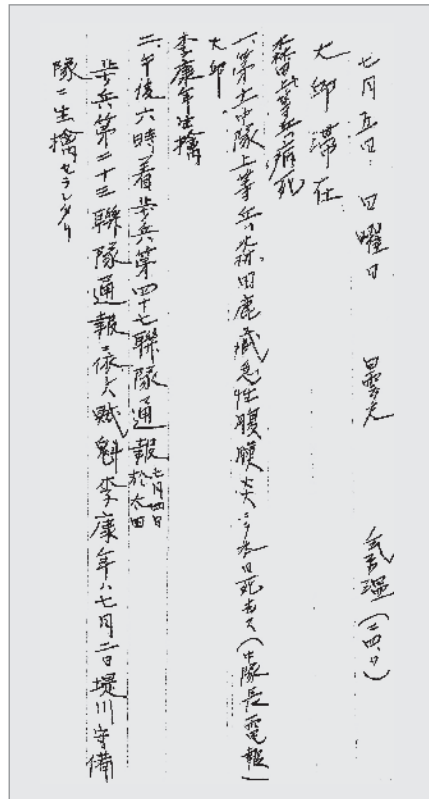 七月五日 日曜日 曇天 氣温(二四、〇)
大邱滞在
森田上等兵病死
一、第十一中隊上等兵森田鹿藏急性腹膜炎ニテ本日死去ス(中隊長電報)
大邱
李康年生擒
二、午後六時着歩兵第四十七聯隊通報 七月四日於太田
歩兵第二十三聯隊通報ニ依レハ賊魁李康年ハ七月二日堤川守備
隊ニ生擒セラレタリ